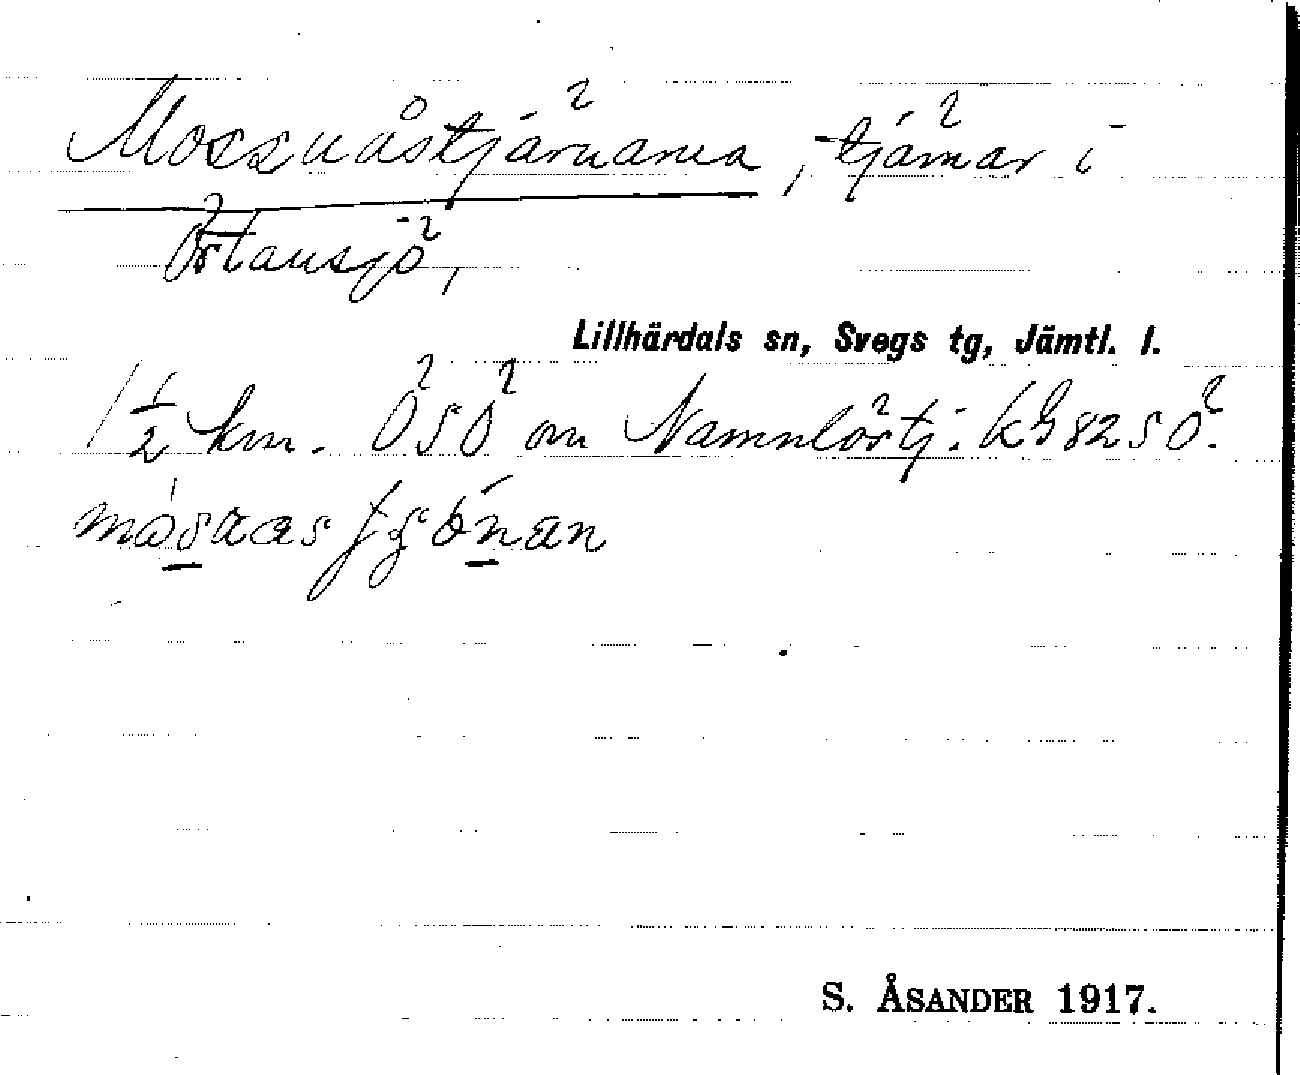 Mossnåstjärnarna, tjärnar i
Östansjö,
Lillhärdals sn, Svegs tg, Jämtl. l.
1 1/2 km. ÖSÖ om Namnlöstj. kg 82 SÖ.
S. ÅSANDER 1917.